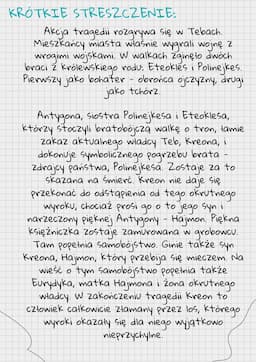 KRÓTKIE STRESZCZENIE:
Akcja tragedii rozgrywa się w Tebach.
Mieszkańcy miasta właśnie wygrali wojnę z
wrogimi wojskami. W walkach zginęło dwóch
braci z królewskiego rodu: Eteokles i Polinejkes.
Pierwszy jako bohater - obrońca ojczyzny, drugi
jako tchórz.
Antygona, siostra Polinejkesa i Eteoklesa,
którzy stoczyli bratobójczą walkę o tron, łamie
zakaz aktualnego władcy Teb, Kreona, i
dokonuje symbolicznego pogrzebu brata -
zdrajcy państwa, Polinejkesa. Zostaje za to
skazana na śmierć. Kreon nie daje się
przekonać do odstąpienia od tego okrutnego
wyroku, chociaż prosi go o to jego syn i
narzeczony pięknej Antygony - Hajmon. Piękna
księżniczka zostaje zamurowana w grobowcu.
Tam popełnia samobójstwo. Ginie także syn
Kreona, Hajmon, który przebija się mieczem. Na
wieść o tym samobójstwo popełnia także
Eurydyka, matka Hajmona i żona okrutnego
władcy. W zakończeniu tragedii Kreon to
człowiek całkowicie złamany przez los, którego
wyroki okazały się dla niego wyjątkowo
nieprzychylne.